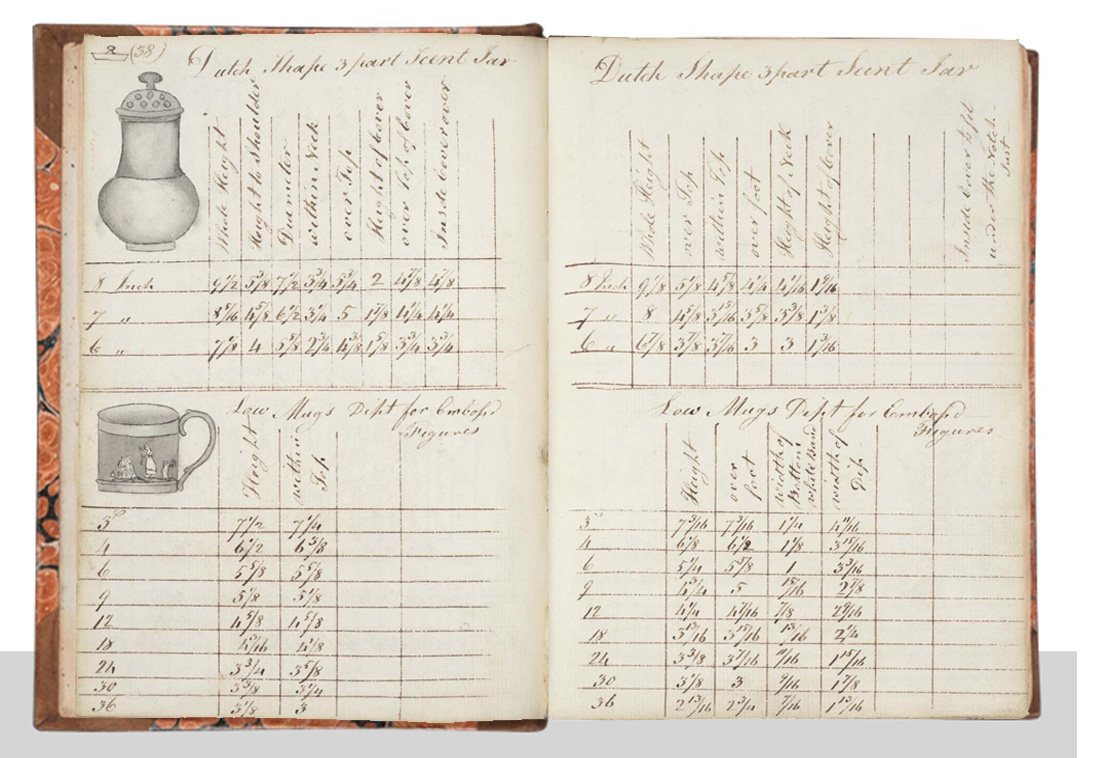 2 (38)
Dutch Shape 3 part Scent Jar
Whole Height
Height to Shoulder
Diamiter
within Neck
over Top
Height of Cover
over Top of Cover
Inside Cover over
8 Inch 9 1/2 7 1/2 2
7 " 6 1/2 3 1/4 5 1 7/8 4 1/4 4 1/4
6 " 7 1/8 4 5 5/8 2 3/4 4 3/8 1 5/8 3 3/4 3 3/4
Low Mugs Dipt for Embos'd
Figures
Height
within Top
3 7 1/2 7 1/4
4 6 1/2 6 3/8
6 5 5/8 5 5/8
9 5 1/8 5 1/8
12 4 5/8 4 5/8
18 4 3/16 4 1/8
24 3 3/4 3 5/8
30 3 3/8 3 1/4
36 3 1/8 3
Dutch Shape 3 part Scent Jar
Whole Height
over Top
within Top
over foot
Height of Neck
Height of Cover
Inside Cover to fit
under the Notch
Just
8 Inch 9 1/8 5 1/8 4 5/8 4 1/4 4 1/16 1 9/16
7 " 8 4 5/8 3 15/16 3 5/8 3 3/8 1 3/8
6 " 6 7/8 3 7/8 3 7/16 3 3 1 3/16
Low Mugs Dipt for Embos'd
Figures
Height
over foot
width of Bottom White Band
width of Dip
3 7 3/16 7 3/16 1 1/4 4 11/16
4 6 1/8 6 1/2 1 1/8 3 15/16
6 5 1/4 5 5/8 1 3 3/16
9 4 3/4 5 15/16 2 7/8
12 4 1/4 4 7/16 7/8 2 9/16
18 3 13/16 3 15/16 13/16 2 1/4
24 3 3/8 3 7/16 11/16 1 15/16
30 3 1/8 3 9/16 1 7/8
36 2 13/16 2 3/4 7/16 1 13/16